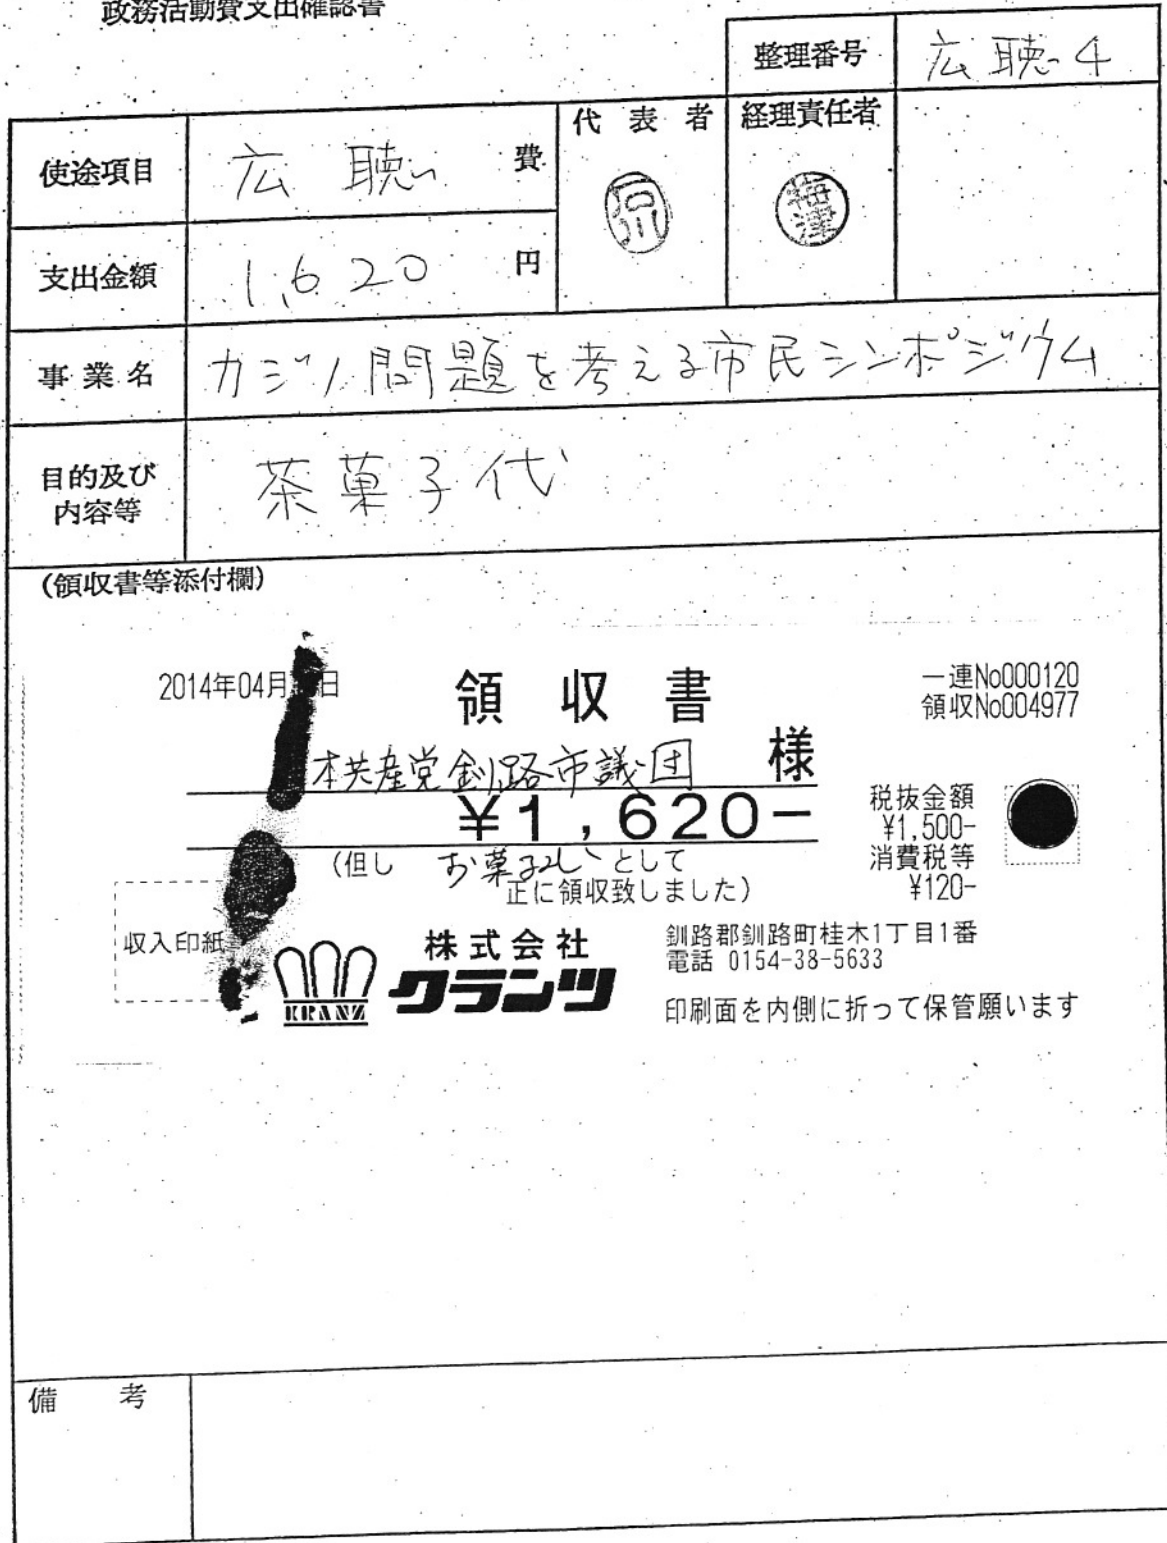 政務活動費支出確認書
整理番号 広聴-4
使途項目 広聴 費
代表者 経理責任者
梅津
支出金額 1,620 円
事業名 カジノ問題を考える市民シンポジウム
目的及び
内容等
茶菓子代
(領収書等添付欄)
2014年04月 日
領収書
一連No000120
領収No004977
本共産党釧路市議団 様
¥1,620-
税抜金額
¥1,500-
消費税等
¥120-
(但し お菓子代 として
正に領収致しました)
収入印紙
KRANZ
株式会社
クランツ
釧路郡釧路町桂木1丁目1番
電話 0154-38-5633
印刷面を内側に折って保管願います
備考